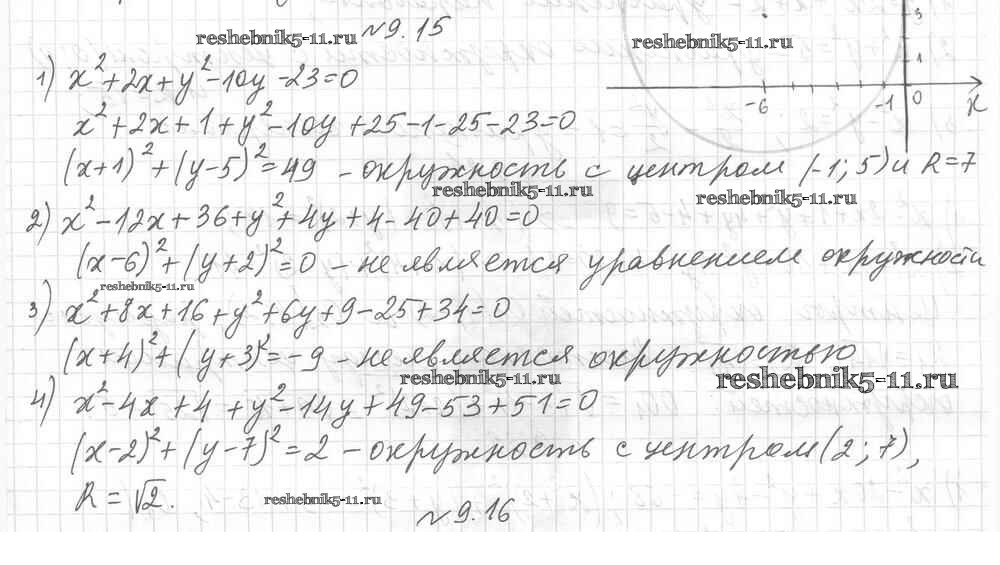 3
1
-6
-1
0
x
№9.15
reshebnik5-11.ru
reshebnik5-11.ru
1) x²+2x+y²-10y-23=0
x²+2x+1+y²-10y+25-1-25-23=0
(x+1)²+(y-5)²=49 - окружность с центром (-1;5) и R=7
reshebnik5-11.ru
reshebnik5-11.ru
2) x²-12x+36+y²+4y+4-40+40=0
(x-6)²+(y+2)²=0 - не является уравнением окружности
reshebnik5-11.ru
3) x²+8x+16+y²+6y+9-25+34=0
(x+4)²+(y+3)²=-9 - не является окружностью
reshebnik5-11.ru
reshebnik5-11.ru
4) x²-4x+4+y²-14y+49-53+51=0
(x-2)²+(y-7)²=2 - окружность с центром (2;7),
R=√2.
reshebnik5-11.ru
№9.16